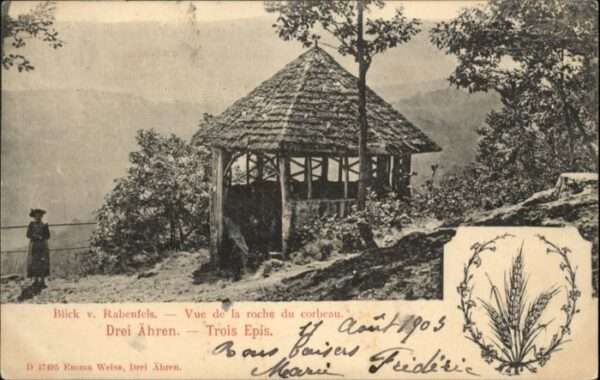 Blick v. Rabenfels. — Vue de la roche du corbeau.
Drei Ähren. — Trois Epis.
11 Août 1903
Bons baisers
Marie Frédéric
D 17495 Emma Weiss, Drei Ähren.